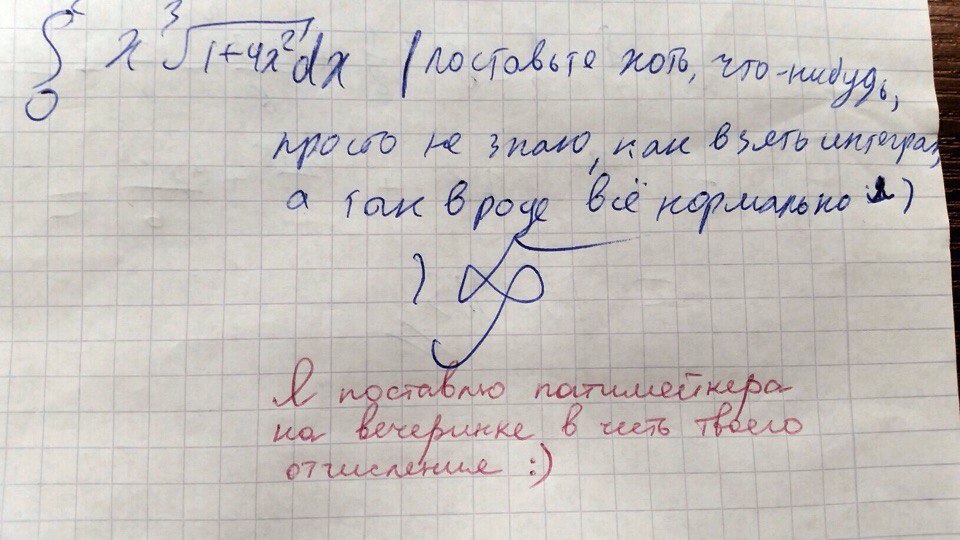 ∫₀ x ∛(1+4x²) dx (поставьте хоть, что-нибудь,
просто не знаю, как взять интеграл,
а так вроде всё нормально )
)
Я поставлю патимейкера
на вечеринке в честь твоего
отчисления :)